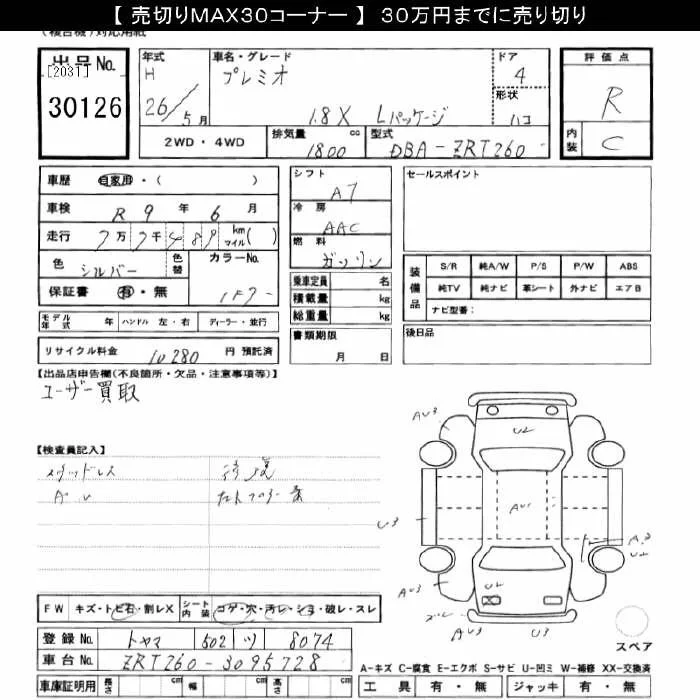 【 売切りMAX30コーナー 】 30万円までに売り切り
出品No. [2031] 30126
年式 H 26/5月
車名・グレード プレミオ 1.8X Lパッケージ
ドア 4
形状 ハコ
評価点 R
内装 C
2WD・4WD
排気量 1800 cc
型式 DBA-ZRT260
車歴 自家用・( )
車検 R 9 年 6 月
走行 7万7千489 km マイル( )
色 シルバー 色替 カラーNo. 1F7
保証書 有・無
シフト AT
冷房 AAC
燃料 ガソリン
乗車定員 名
積載量 kg
総重量 kg
書類期限 月 日
セールスポイント
装備品 S/R 純A/W P/S P/W ABS
純TV 純ナビ 革シート 外ナビ エアB
ナビ型番:
後日品
モデル年式 年 ハンドル 左・右 ディーラー・並行
リサイクル料金 10280 円 預託済
【出品店申告欄(不良箇所・欠品・注意事項等)】
ユーザー買取
【検査員記入】
スタッドレス
A U
FW キズ・トビ石・割レX シート内装 コゲ・穴・汚レ・シミ・破レ・スレ
登録No. トヤマ 502 ツ 8074
車台No. ZRT260-3095728
車庫証明用 長さ cm 幅 cm 高さ cm
AU3
U2
U3
A3
U2
U2
AU3
U3
スペア
A-キズ C-腐食 E-エクボ S-サビ U-凹ミ W-補修 XX-交換済
工具 有・無 ジャッキ 有・無